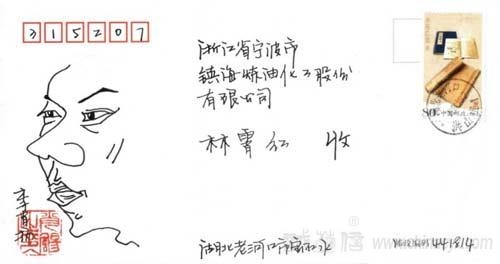 315207
浙江省宁波市
镇海炼油化工股份
有限公司
林霄红 收
80分 中国邮政
湖北老河口市
邮政编码 441814